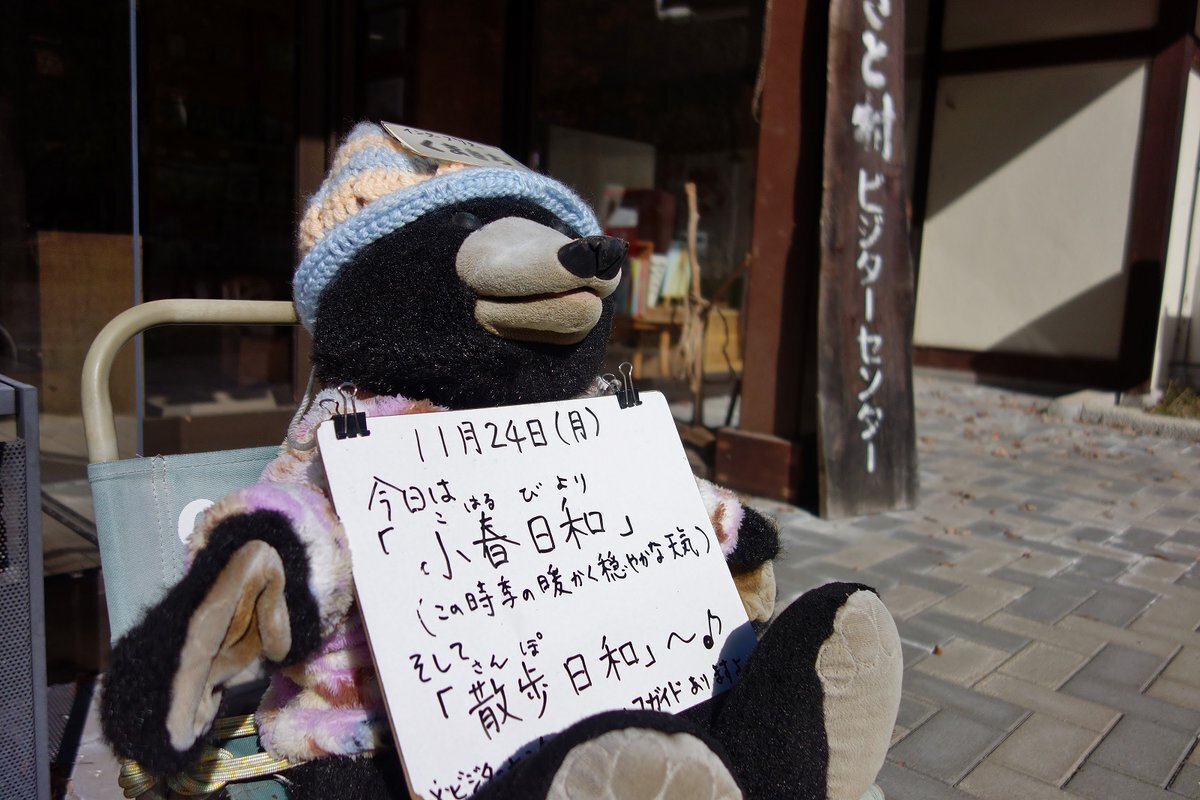 11月24日(月)
今日は
こ はる び より
「小春日和」
(この時季の暖かく穏やかな天気)
そして
さん ぽ
「散歩日和」～♪
ガイドあります
ビジター
と村 ビジターセンター